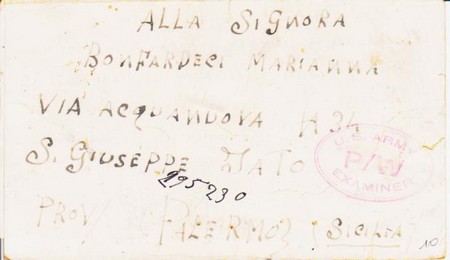 ALLA SIGNORA
BONFARDECI MARIANNA
VIA ACQUANUOVA N 34
S. GIUSEPPE JATO
295230
PROV PALERMO (SICILIA)
U.S. ARMY
P/W
EXAMINER
10